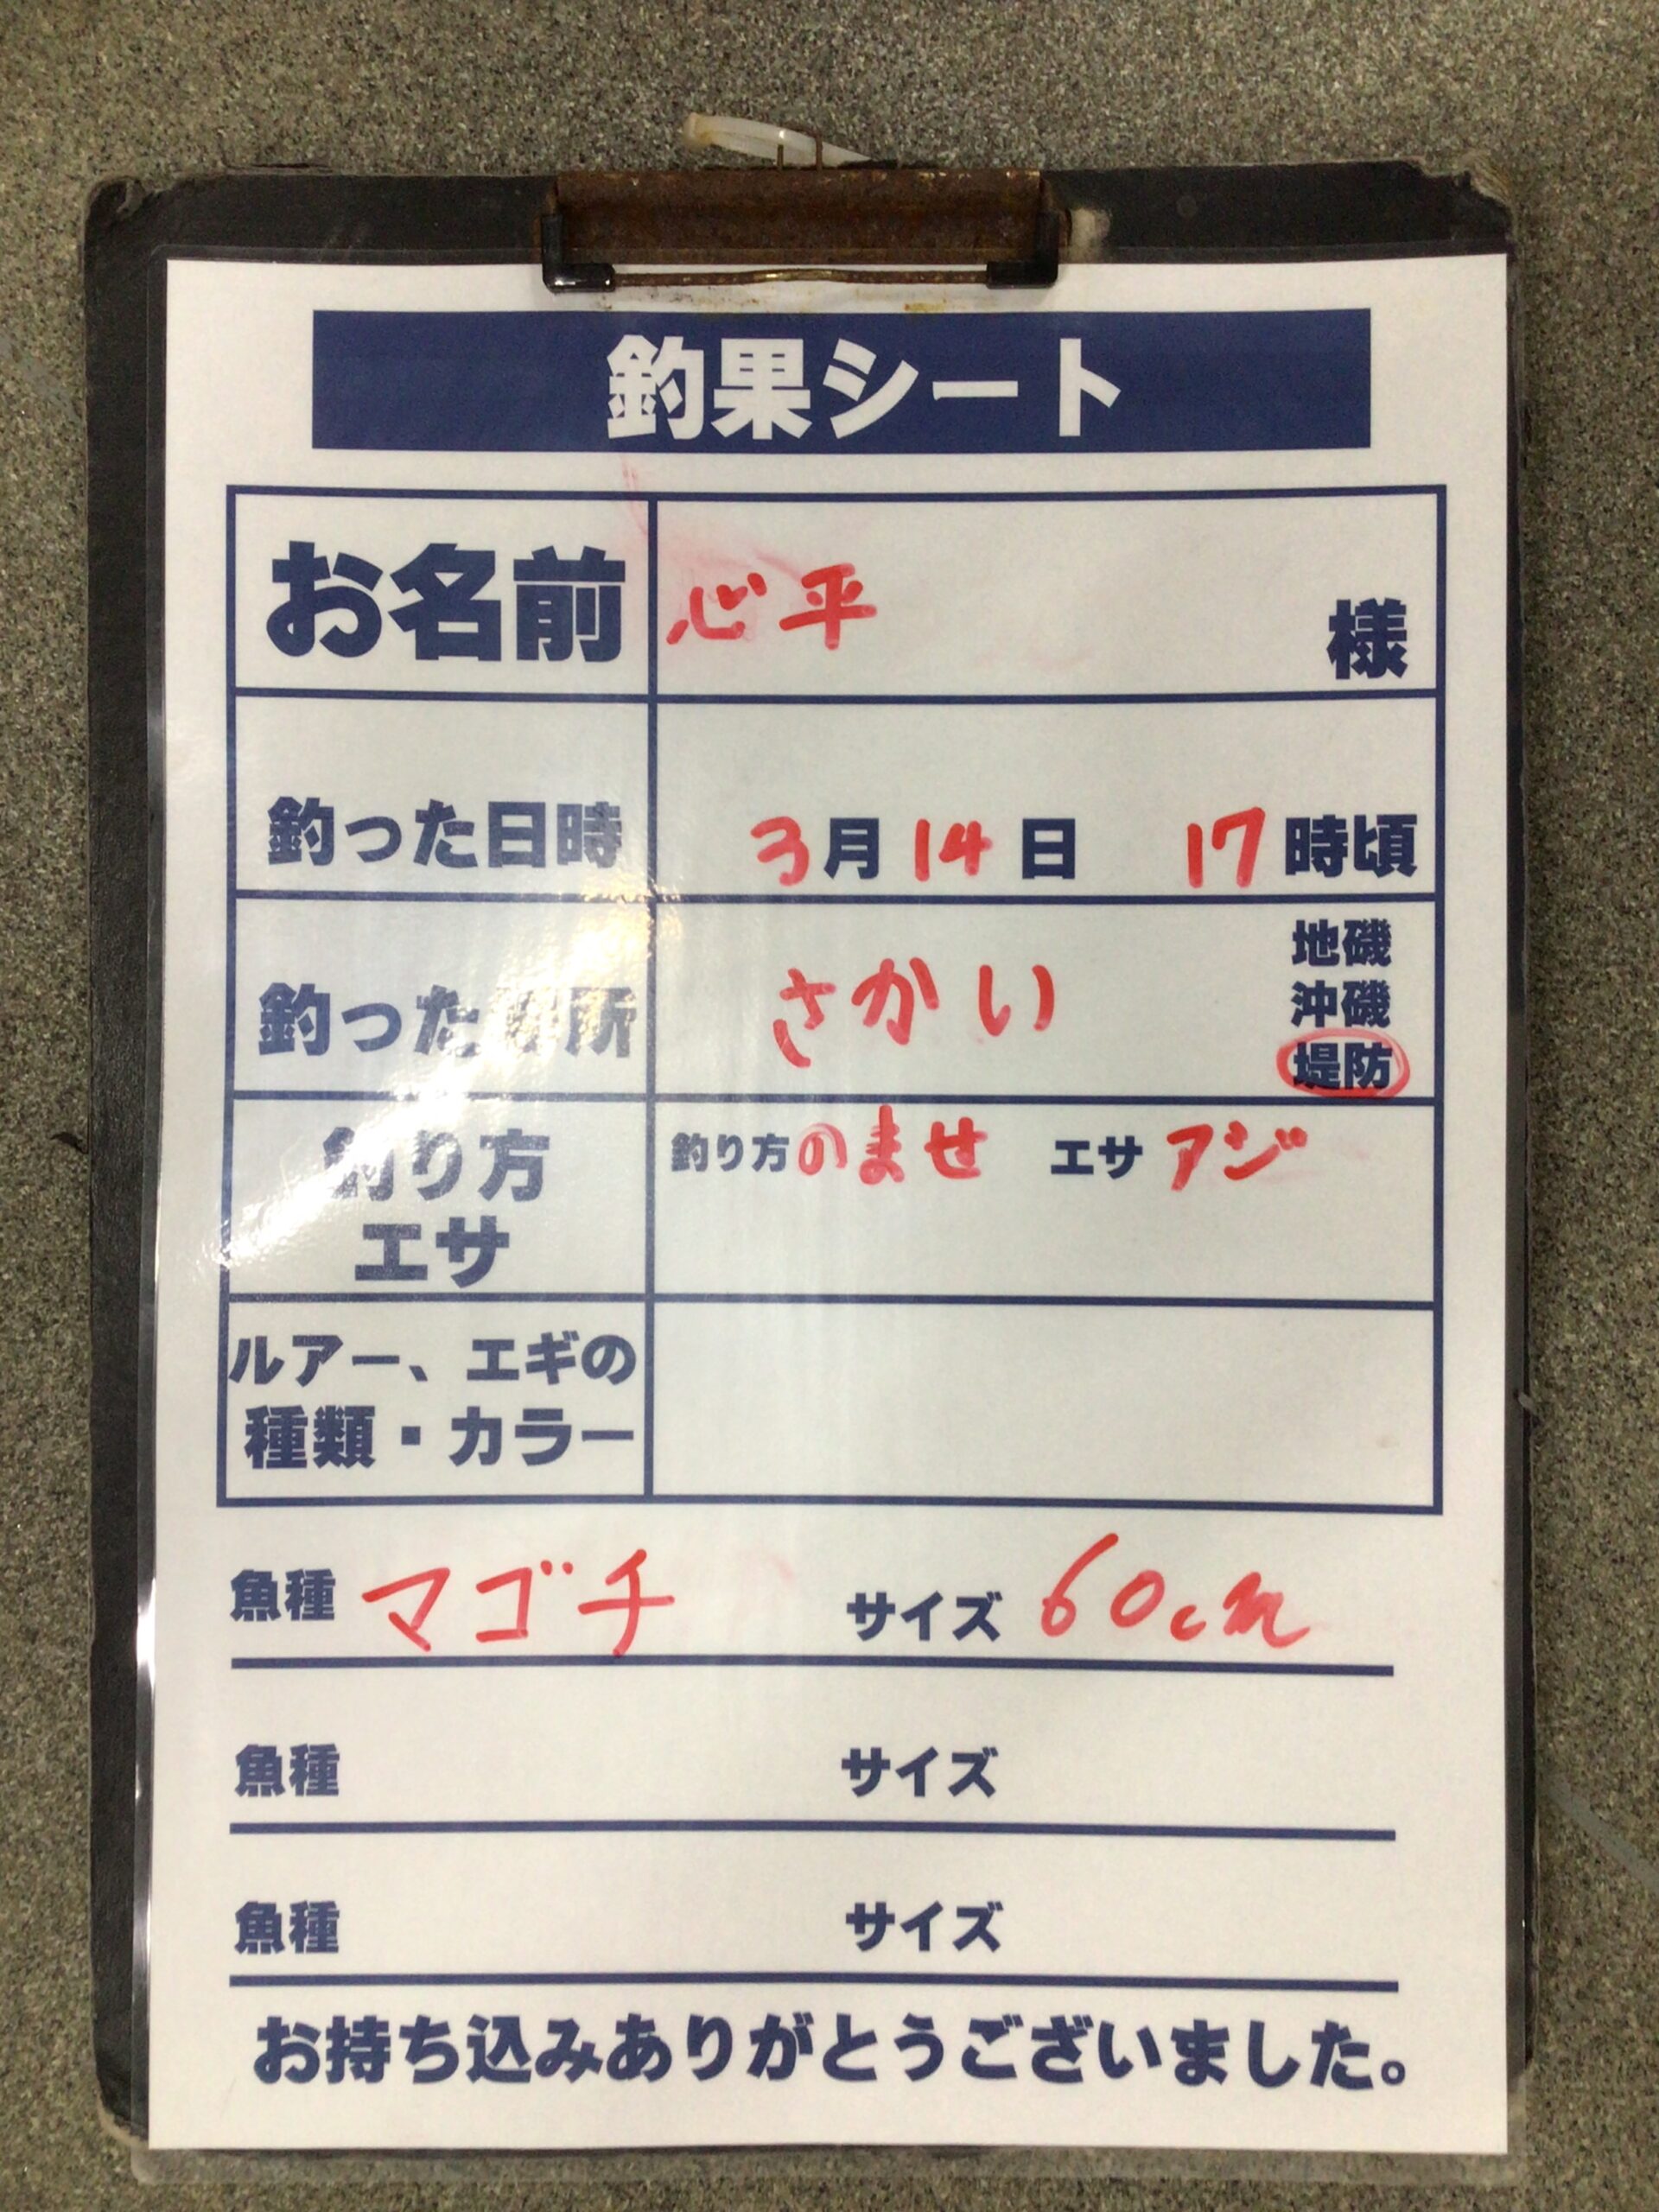 釣果シート
お名前 心平 様
釣った日時 3月14日 17時頃
地磯
釣った場所 さかい 沖磯
堤防
釣り方 釣り方 のませ エサ アジ
エサ
ルアー、エギの
種類・カラー
魚種 マゴチ サイズ 60cm
魚種 サイズ
魚種 サイズ
お持ち込みありがとうございました。